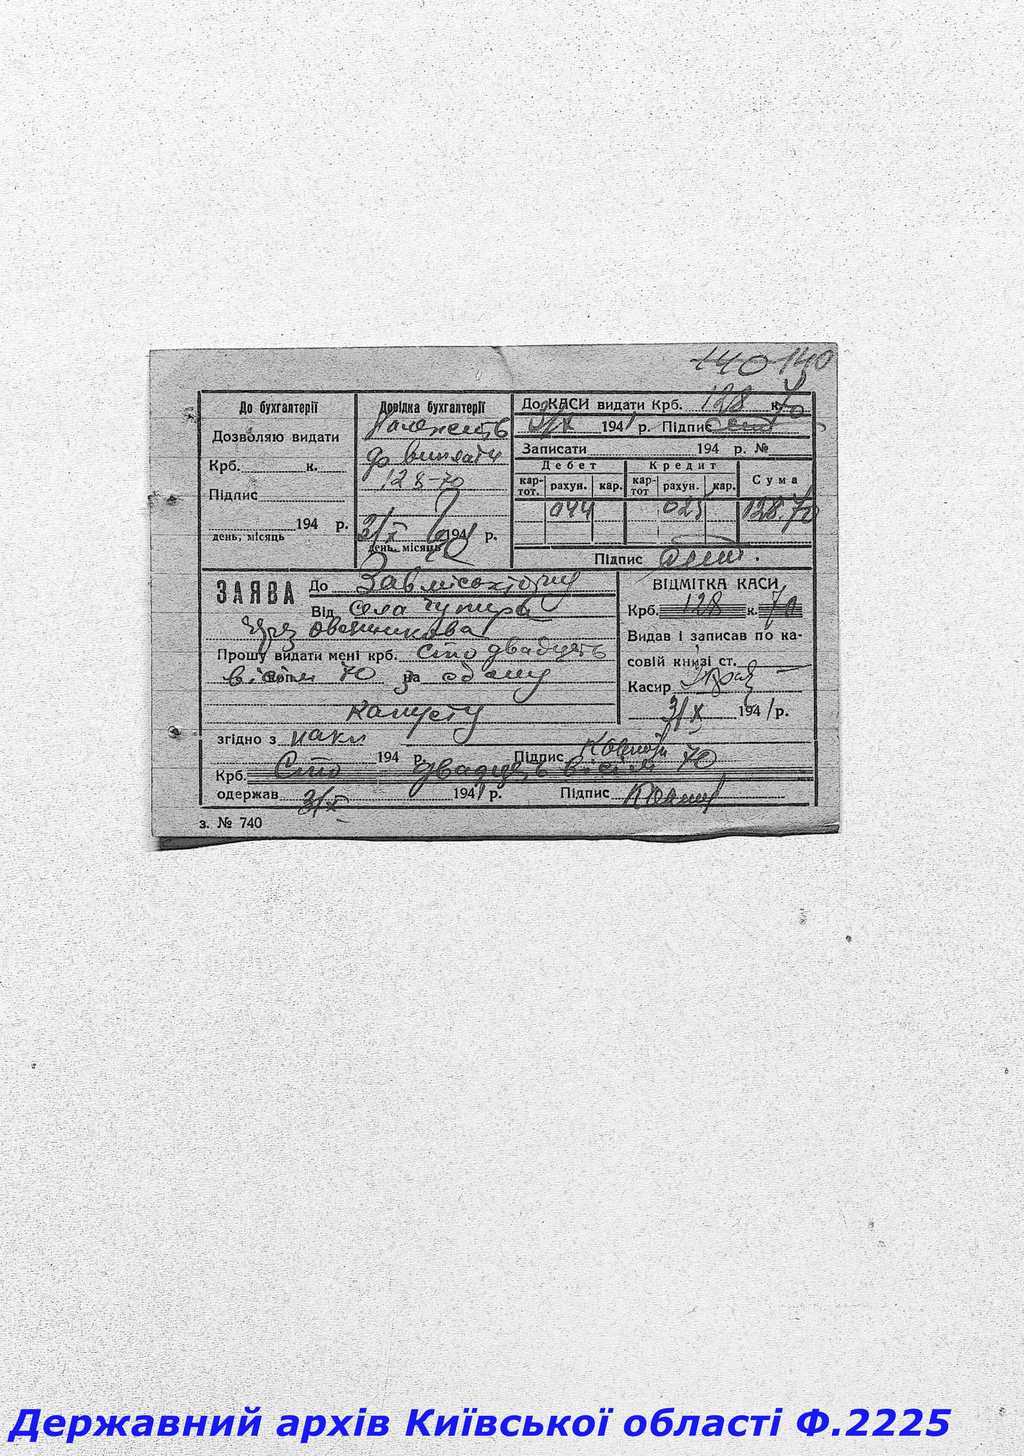 140 140
До бухгалтерії
Дозволяю видати
Крб. к.
Підпис
194 р.
день, місяць
Довідка бухгалтерії
Належить
до виплати
128-70
31/X 1941 р.
день, місяць
До КАСИ видати Крб. 128 к. 70
31/X 1941 р. Підпис
Записати 194 р. №
Дебет Кредит Сума
кар-тот. рахун. кар. кар-тот рахун. кар.
044 025 128.70
Підпис
ЗАЯВА До
Від села
Овсянникова
Прошу видати мені крб. сто двадцять
вісім коп. 70 на
капусту
згідно з 194 р. Підпис
Крб. Сто двадцять вісім 70
одержав 31/X 1941 р. Підпис
ВІДМІТКА КАСИ
Крб. 128 к. 70
Видав і записав по ка-
совій книзі ст.
Касир
31/X 1941 р.
з. № 740
Державний архів Київської області Ф.2225